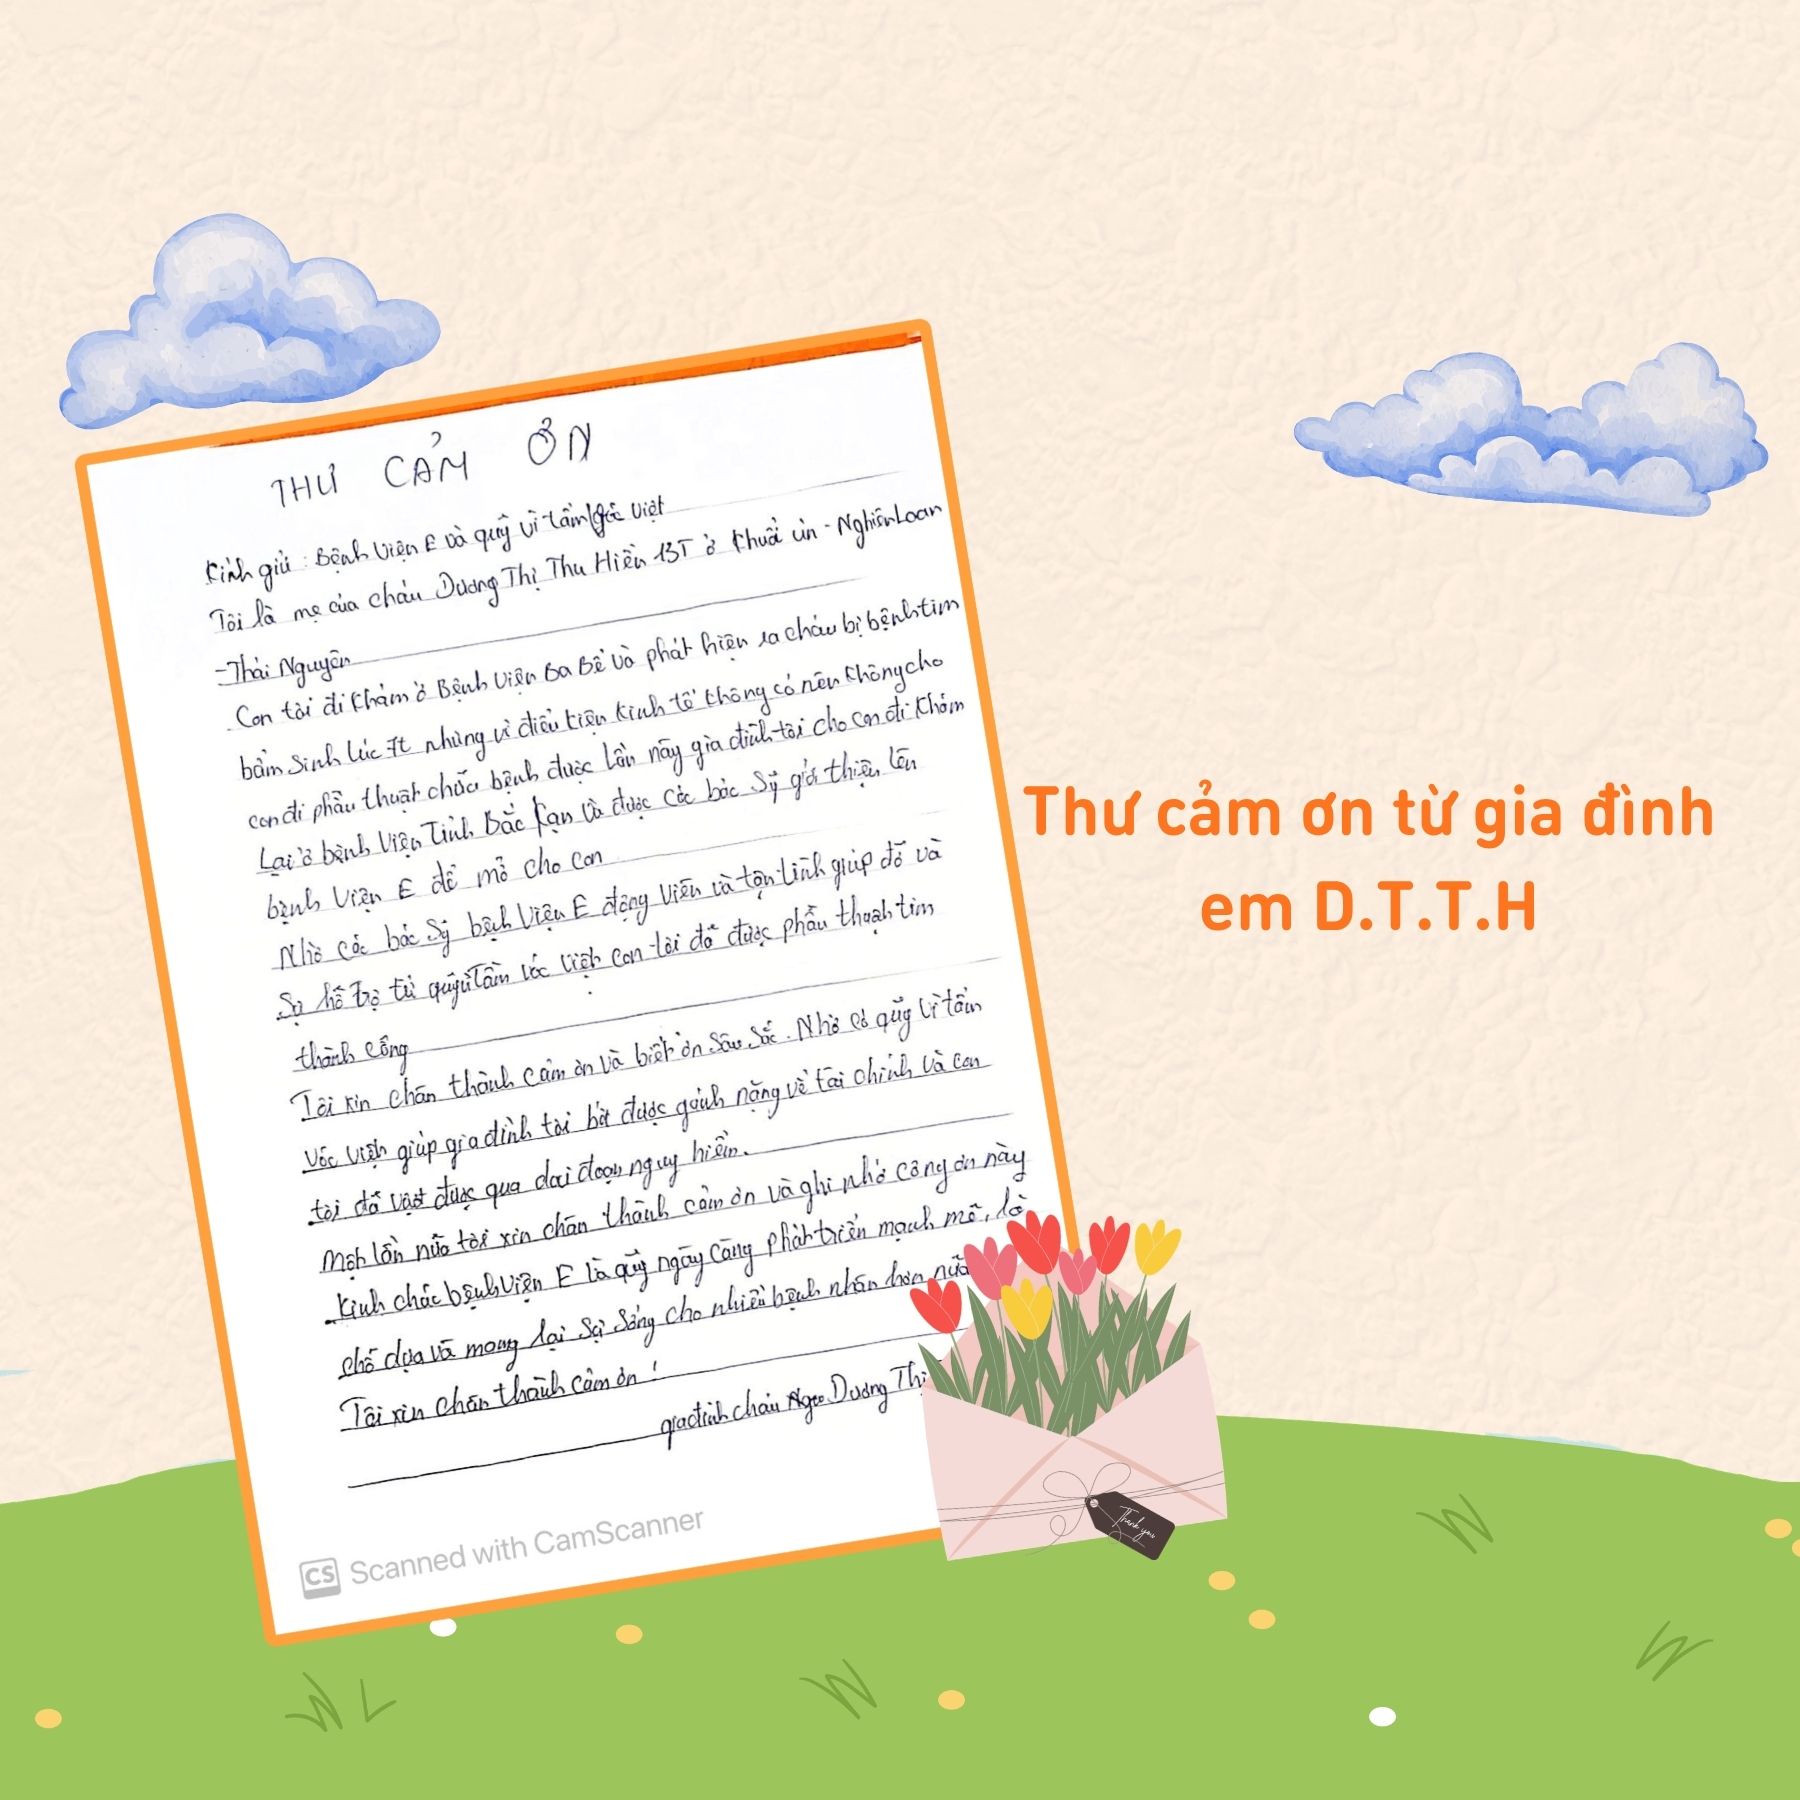 THƯ CẢM ƠN
Kính gửi: Bệnh Viện E và quỹ vì tầm vóc Việt
Tôi là mẹ của cháu Dương Thị Thu Hiền 13T ở Khuổi ún - Nghiên Loan
- Thái Nguyên
Con tôi đi khám ở Bệnh Viện Ba Bể và phát hiện ra cháu bị bệnh tim
bẩm sinh lúc 7t nhưng vì điều kiện kinh tế không có nên không cho
con đi phẫu thuật chữa bệnh được lần này gia đình tôi cho con đi khám
Lại ở bệnh Viện Tỉnh Bắc Kạn và được các bác sỹ giới thiện lên
bệnh Viện E để mổ cho con
Nhờ các bác sỹ bệnh Viện E động viên và tận tình giúp đỡ và
Sự hỗ trợ từ quỹ vì Tầm vóc việt con tôi đã được phẫu thuật tim
thành công
Tôi xin chân thành cảm ơn và biết ơn sâu sắc. Nhờ có quỹ vì tầm
vóc việt giúp gia đình tôi bớt được gánh nặng về tài chính và con
tôi đã vượt được qua dai đoạn nguy hiểm.
Một lần nữa tôi xin chân thành cảm ơn và ghi nhớ công ơn này
Kính chúc bệnh viện E và quỹ ngày càng phát triển mạnh mẽ, là
chỗ dựa và mang lại sự sống cho nhiều bệnh nhân hơn nữa
Tôi xin chân thành cảm ơn!
gia đình cháu Dương Thị
CS Scanned with CamScanner
Thư cảm ơn từ gia đình
em D.T.T.H
Thank you